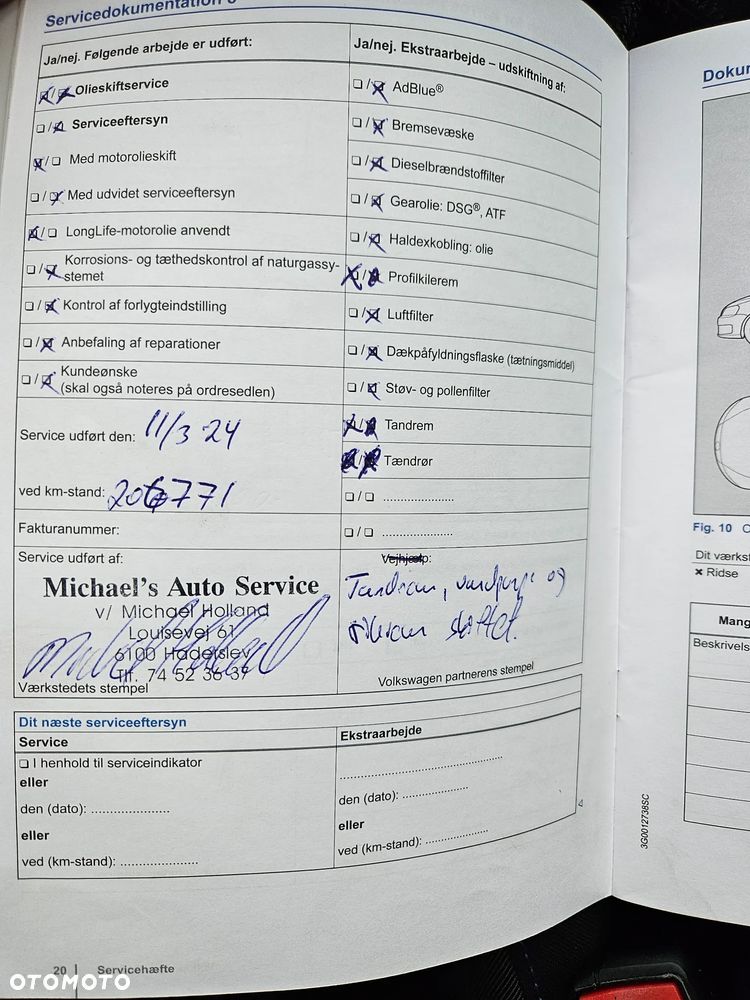 Servicedokumentation
Ja/nej. Følgende arbejde er udført:
Olieskiftservice
Serviceeftersyn
Med motorolieskift
Med udvidet serviceeftersyn
LongLife-motorolie anvendt
Korrosions- og tæthedskontrol af naturgassy-
stemet
Kontrol af forlygteindstilling
Anbefaling af reparationer
Kundeønske
(skal også noteres på ordresedlen)
Service udført den: 11/3 24
ved km-stand: 206771
Fakturanummer:
Service udført af:
Michael's Auto Service
v/ Michael Holland
Louisevej 61
6100 Haderslev
Tlf. 74 52 36 37
Værkstedets stempel
Ja/nej. Ekstraarbejde – udskiftning af:
AdBlue®
Bremsevæske
Dieselbrændstoffilter
Gearolie: DSG®, ATF
Haldexkobling: olie
Profilkilerem
Luftfilter
Dækpåfyldningsflaske (tætningsmiddel)
Støv- og pollenfilter
Tandrem
Tændrør
Vejhjælp:
Tandrem, vandpumpe og
kilerem skiftet.
Volkswagen partnerens stempel
Dit næste serviceeftersyn
Service
I henhold til serviceindikator
eller
den (dato): ....................
eller
ved (km-stand): ....................
Ekstraarbejde
den (dato): ....................
eller
ved (km-stand): ....................
4
20 | Servicehæfte
Dokum
Fig. 10
Dit værkst
× Ridse
Mang
Beskrivels
3G0012738SC
OTOMOTO